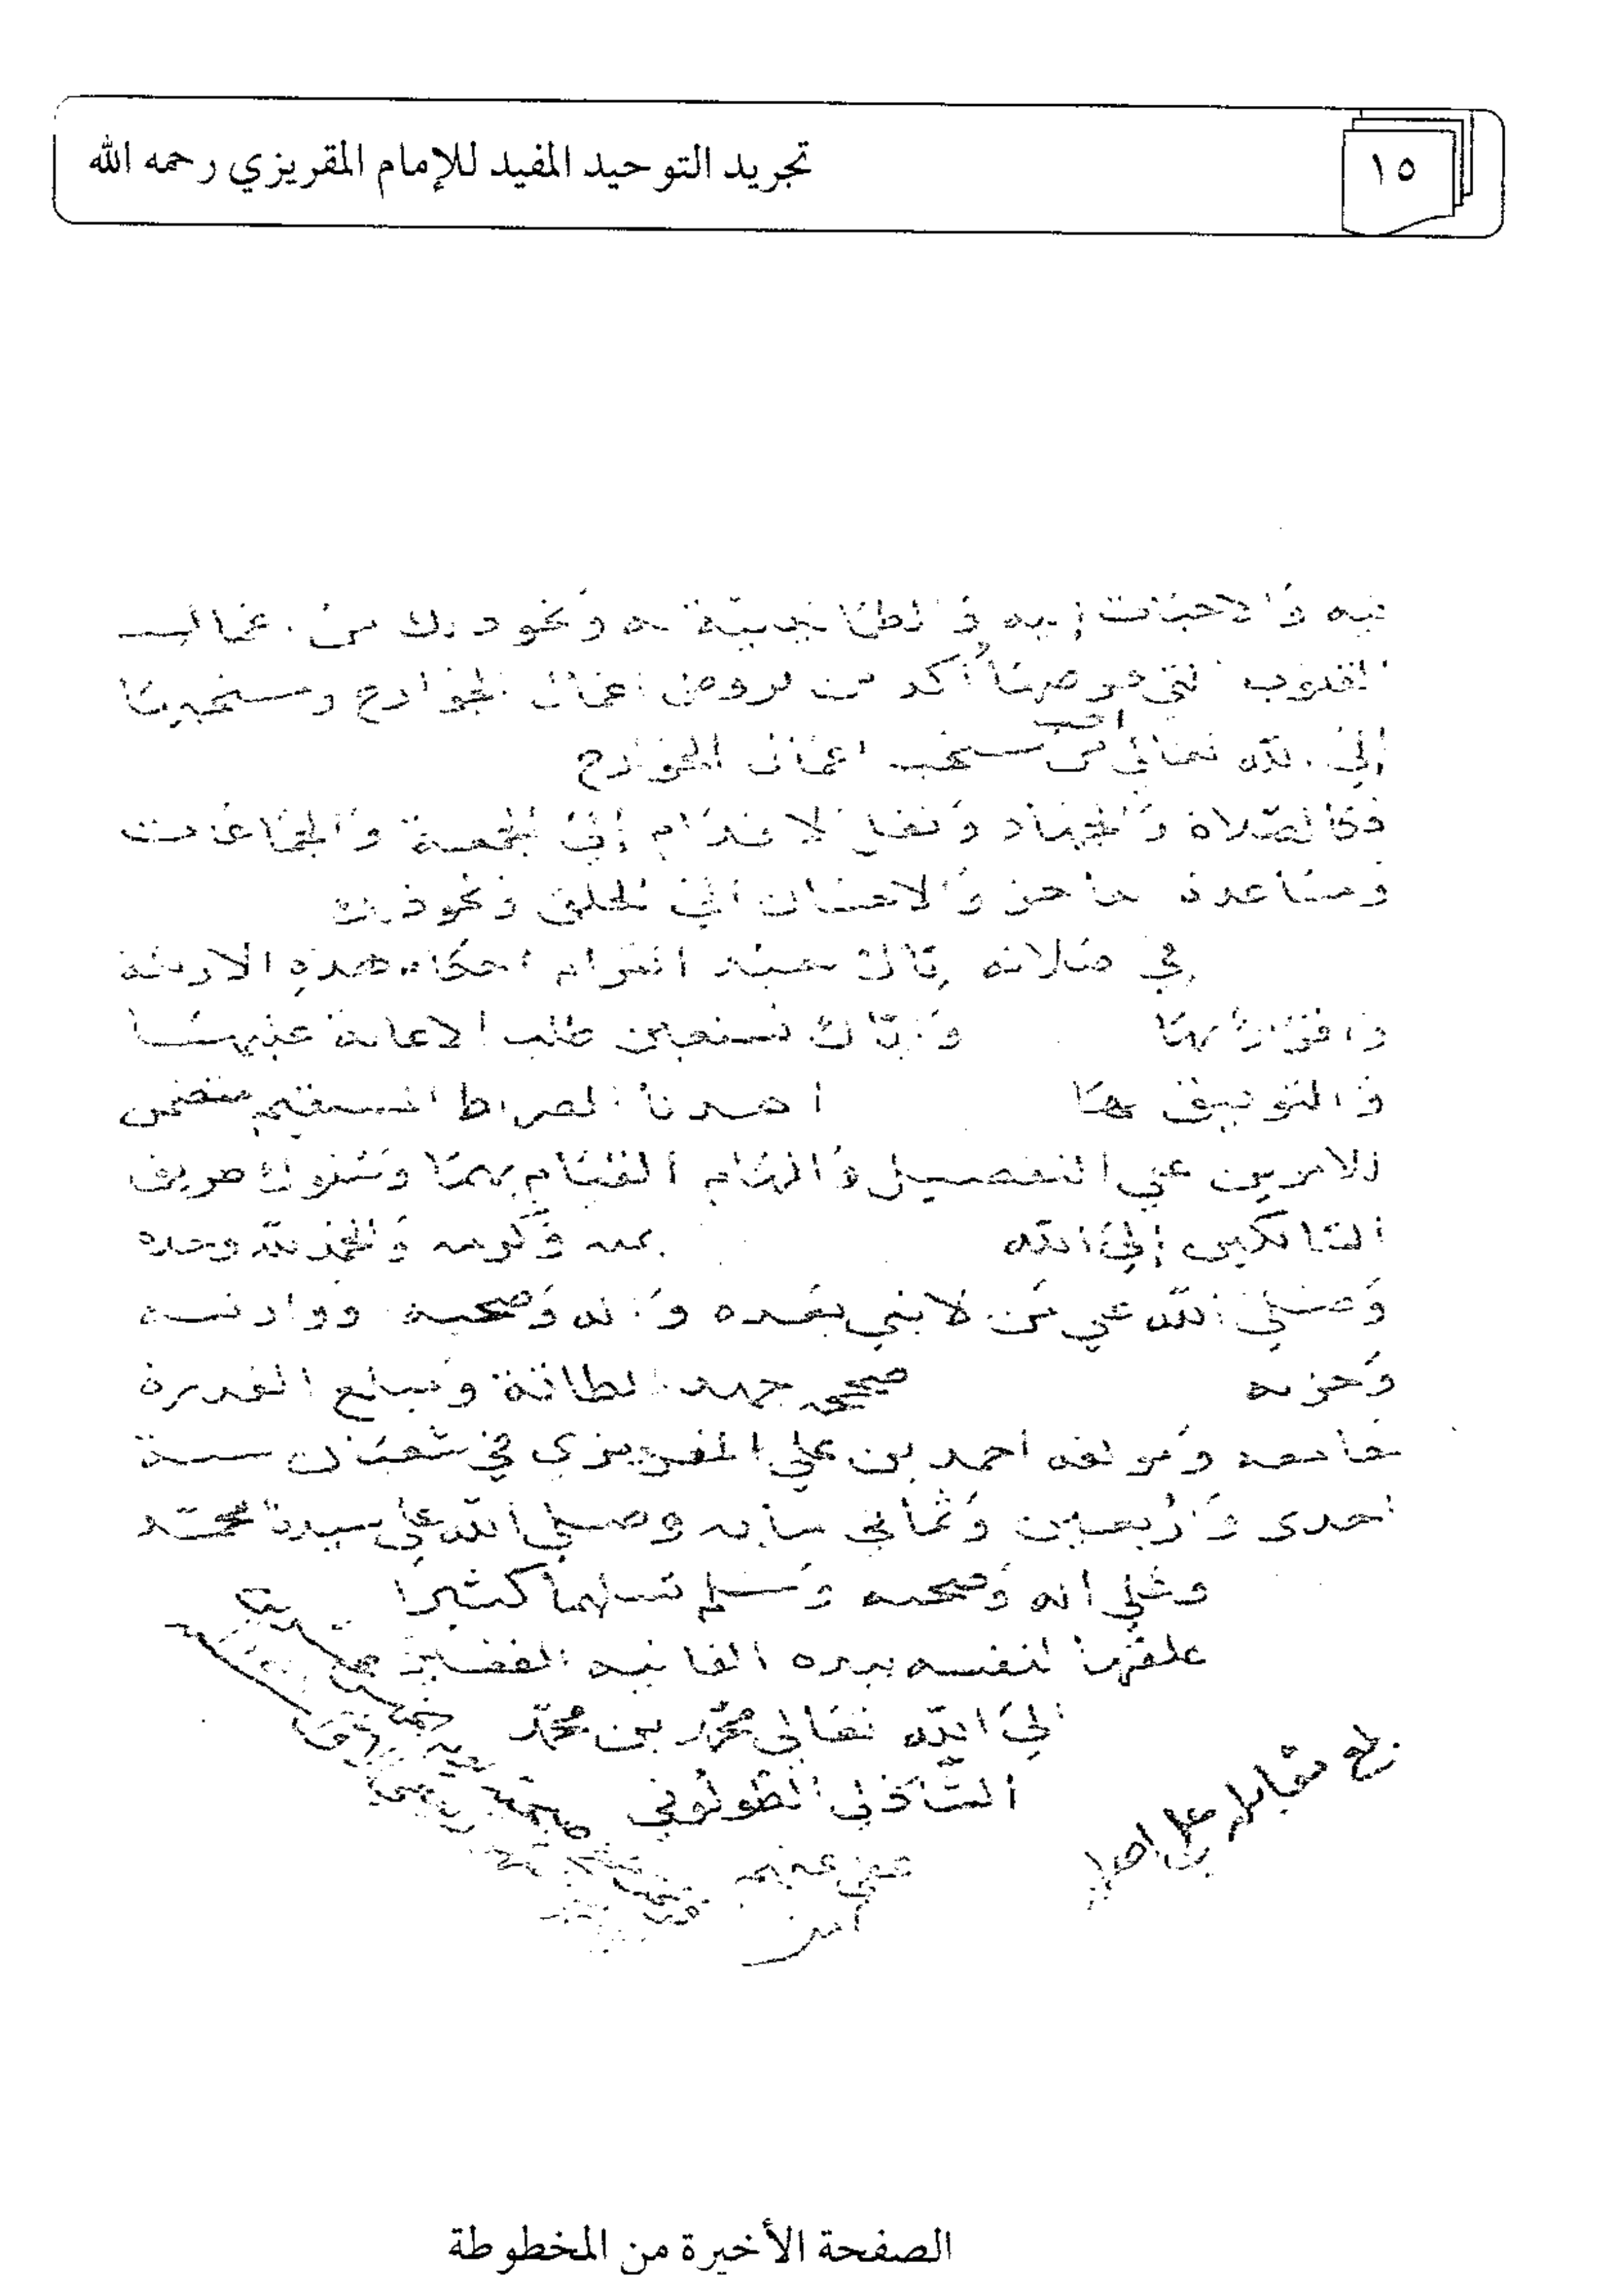 ١٥
تجريد التوحيد المفيد للإمام المقريزي رحمه الله
والاخبات إليه والطمانينة به ونحو ذلك من اعمال
القلوب التي فرضها أكد من فروض اعمال الجوارح ومستحبها
إلى الله تعالى احب من مستحب اعمال الجوارح
فكالصلاة والجهاد ونقل الاقدام إلى الجمعة والجماعات
ومساعدة العاجز والاحسان الى الخلق ونحو ذلك
في صلاته إياك نعبد التزام احكام هذه الاربعة
واقرار بها وإياك نستعين طلب الاعانة عليها
والتوفيق لها اهدنا الصراط المستقيم متضمن
للامرين على التفصيل والهام القيام بهما وسلوك طريق
السالكين إلى الله بمنه وكرمه والحمد لله وحده
وصلى الله على من لا نبي بعده واله وصحبه ووارثيه
وحزبه صححه جهد الطاقة ومبلغ القدرة
جامعه ومولفه احمد بن علي المقريزي في شعبان سنة
احدى واربعين وثماني مايه وصلى الله على سيدنا محمد
وعلى اله وصحبه وسلم تسليما كثيرا
علقها لنفسه بيده الفانيه الفقير
الى الله تعالى محمد بن محمد
الشاذلي الطولوني
عفي عنه
امين
بلغ مقابله على اصله
الصفحة الأخيرة من المخطوطة